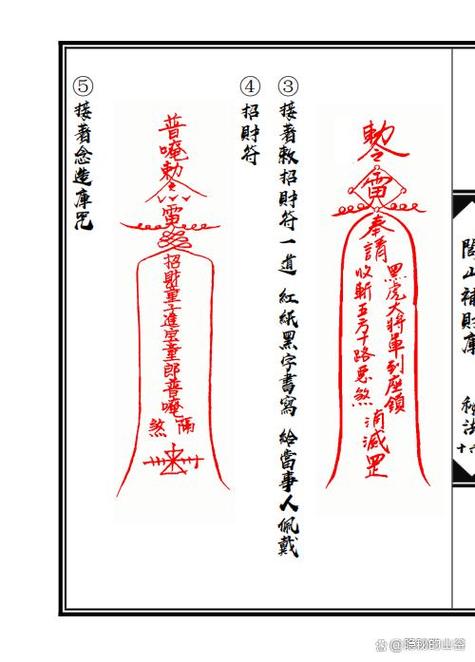 閭山補財庫 秘法
十六
勅令
雷
奉請
黑虎大將軍到座鎮
收斬五方十路惡煞
消滅罡
③ 接著敕招財符一道 紅紙黑字書寫 給當事人佩戴
④ 招財符
普唵勅令
雷
招財童子進宝童郎普唵
煞
⑤ 接著念造庫咒
@隐秘的山谷